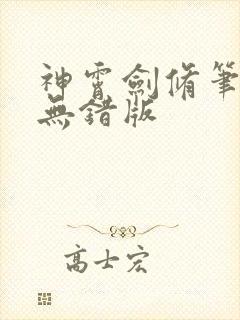 神霄劍脩筆
無錯版
高士宏